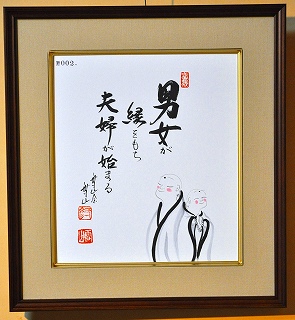 B002.
男女が
縁をもち
夫婦が始まる